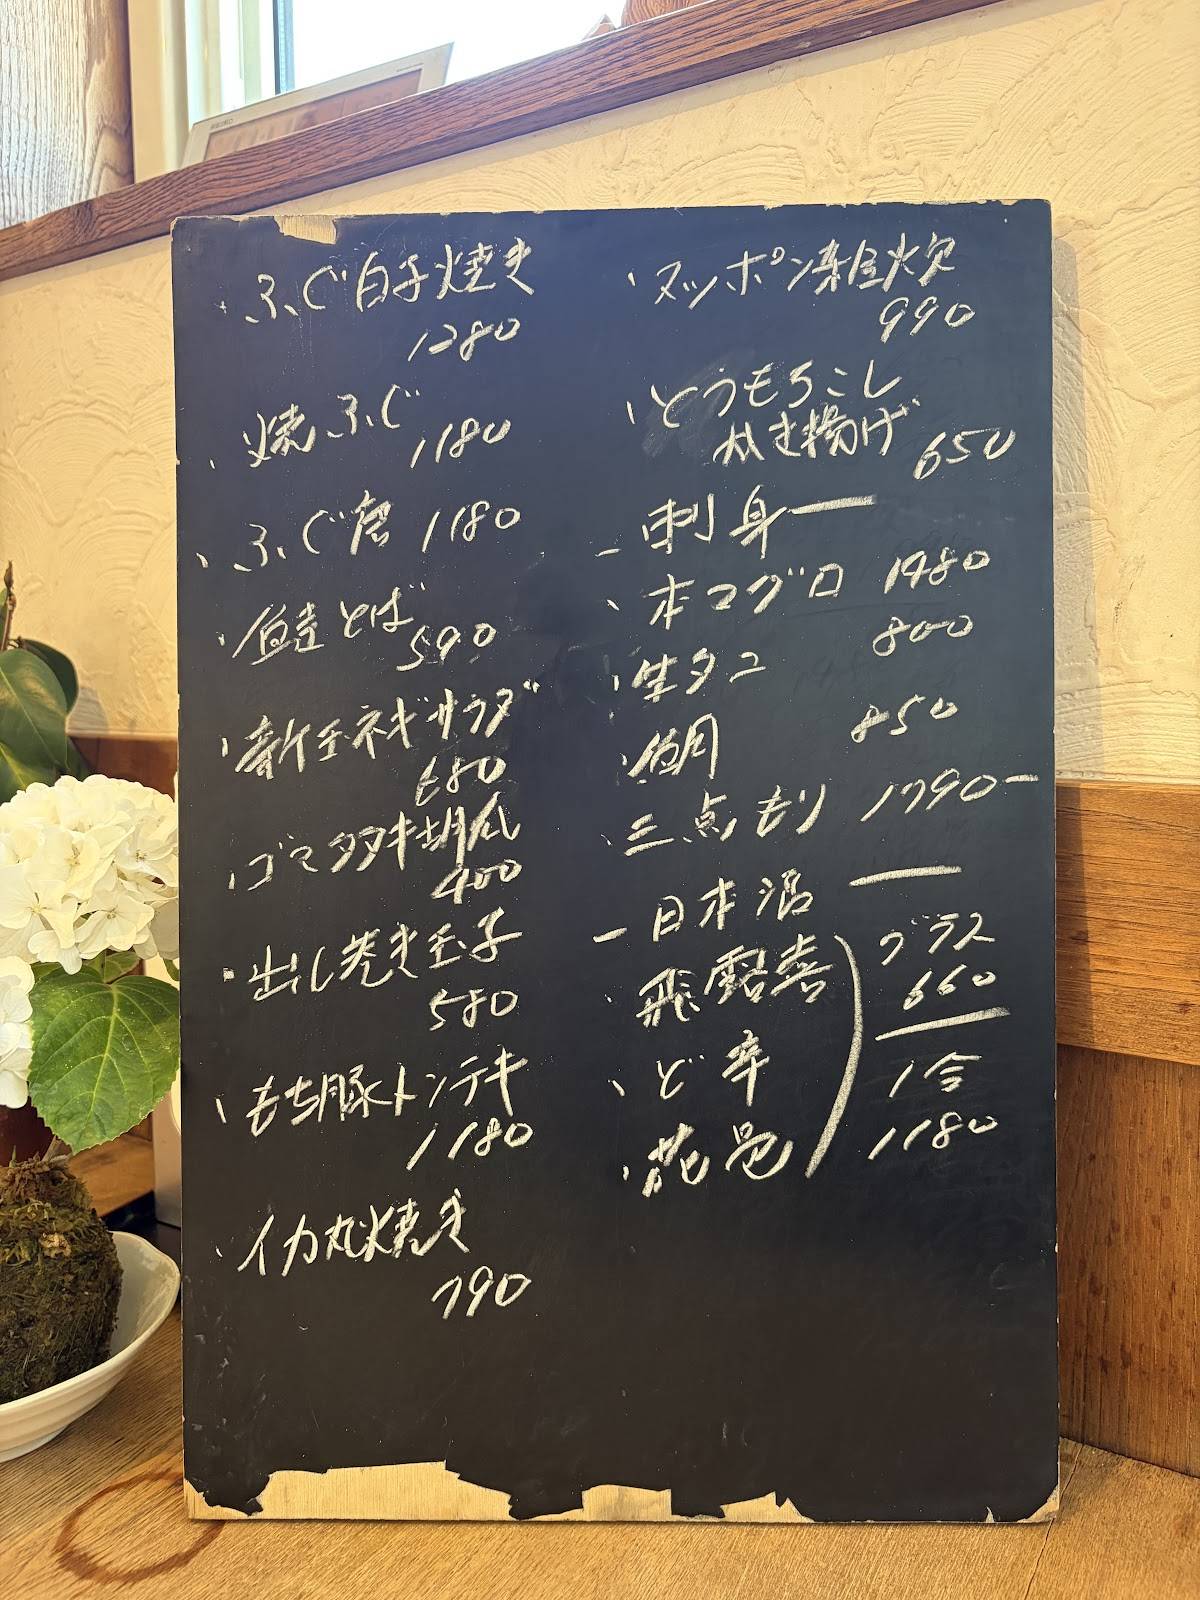 ・ふぐ白子焼き
1280
、焼ふぐ
1180
、ふぐ唐 1180
、鮭とば
590
、新玉ネギサラダ
680
、ゴマタタキ胡瓜
400
・出し巻き玉子
580
、もち豚トンテキ
1180
、イカ丸焼き
790
、スッポン雑炊
990
、とうもろこし
かき揚げ
650
ー刺身ー
、本マグロ 1480
、生タコ 800
、鯛 850
、三点もり 1790-
ー日本酒ー
、飛露喜
、ど辛
、花邑
グラス
660
1合
1180